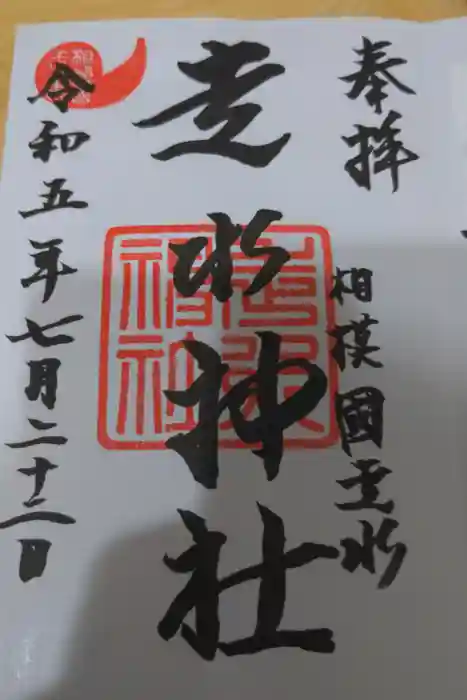 奉拝
相模國走水
走水神社
走水神社
令和五年七月二十二日